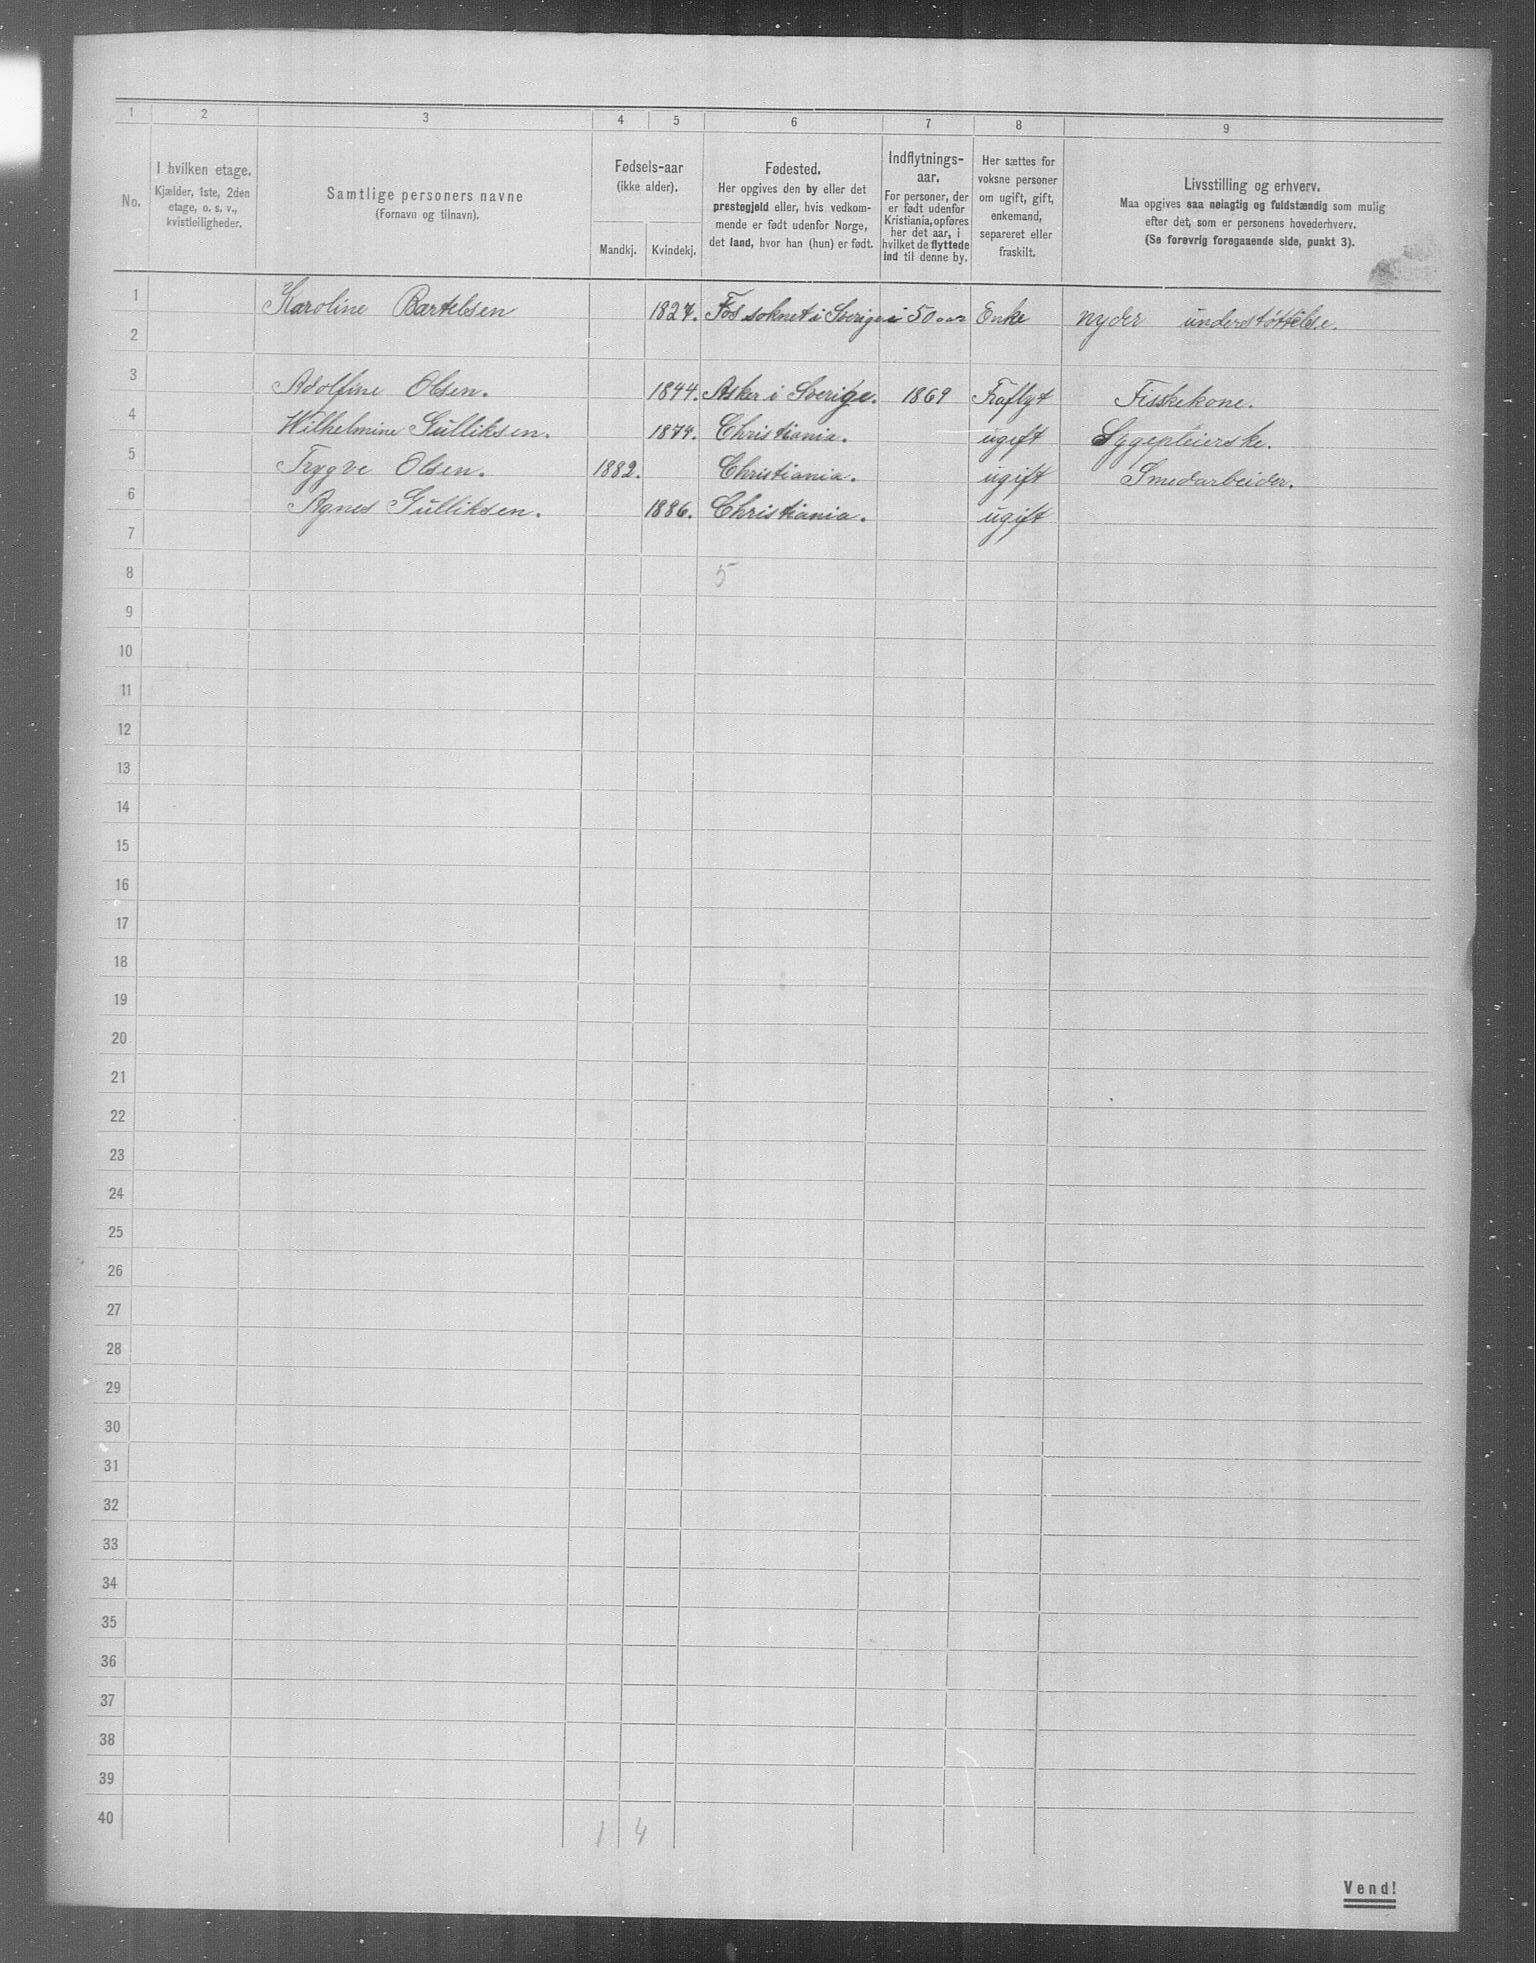 1 2 3 4 5 6 7 8 9
No.
I hvilken etage.
Kjælder, 1ste, 2den
etage, o. s. v.,
kvistleiligheder.
Samtlige personers navne
(Fornavn og tilnavn).
Fødsels-aar
(ikke alder).
Mandkj. Kvindekj.
Fødested.
Her opgives den by eller det
prestegjeld eller, hvis vedkom-
mende er født udenfor Norge,
det land, hvor han (hun) er født.
Indflytnings-
aar.
For personer, der
er født udenfor
Kristiania, opføres
her det aar, i
hvilket de flyttede
ind til denne by.
Her sættes for
voksne personer
om ugift, gift,
enkemand,
separeret eller
fraskilt.
Livsstilling og erhverv.
Maa opgives saa nøiagtig og fuldstændig som mulig
efter det, som er personens hovederhverv.
(Se forøvrig foregaaende side, punkt 3).
1 Karoline Bartelsen 1827. Fos soknet i Sverige i 50 aar Enke nyder understøttelse.
2
3 Adolfine Olsen. 1844. Asker i Sverige. 1869 Fraflyt Fiskekone.
4 Wilhelmine Gulliksen. 1874. Christiania. ugift Sygepleierske.
5 Trygve Olsen. 1882. Christiania. ugift Smedarbeider.
6 Agnes Gulliksen. 1886. Christiania. ugift
7
8 5
9
10
11
12
13
14
15
16
17
18
19
20
21
22
23
24
25
26
27
28
29
30
31
32
33
34
35
36
37
38
39
40 1 4
Vend!